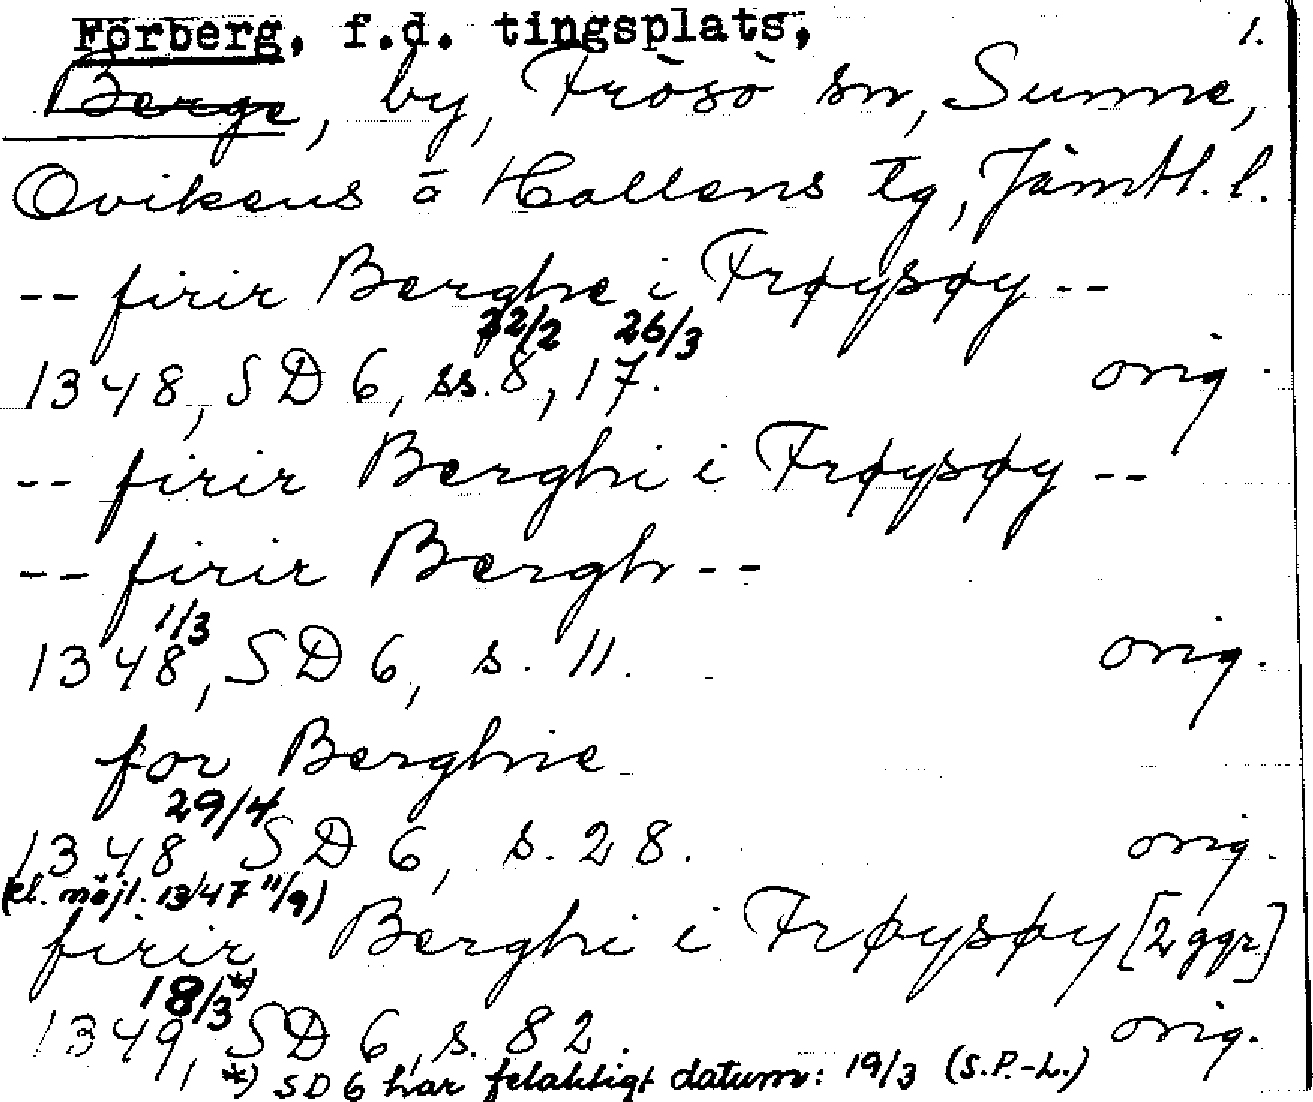 Förberg, f.d. tingsplats, 1.
Berge, by, Frösö sn, Sunne,
Ovikens o Hallens tg, Jämtl. l.
-- firir Berghe i Frøysøy --
22/2 26/3
1348, SD 6, ss. 8, 17. orig.
-- firir Berghi i Frøysøy --
-- firir Bergh --
1/3
1348, SD 6, s. 11. orig.
for Berghie
29/4
1348 SD 6, s. 28. orig.
(el. möjl. 1347 11/9)
firir Berghi i Frøysøy [2 ggr]
18/3 *)
1349, SD 6, s. 82. orig.
*) SD 6 har felaktigt datum: 19/3 (S.P.-L.)